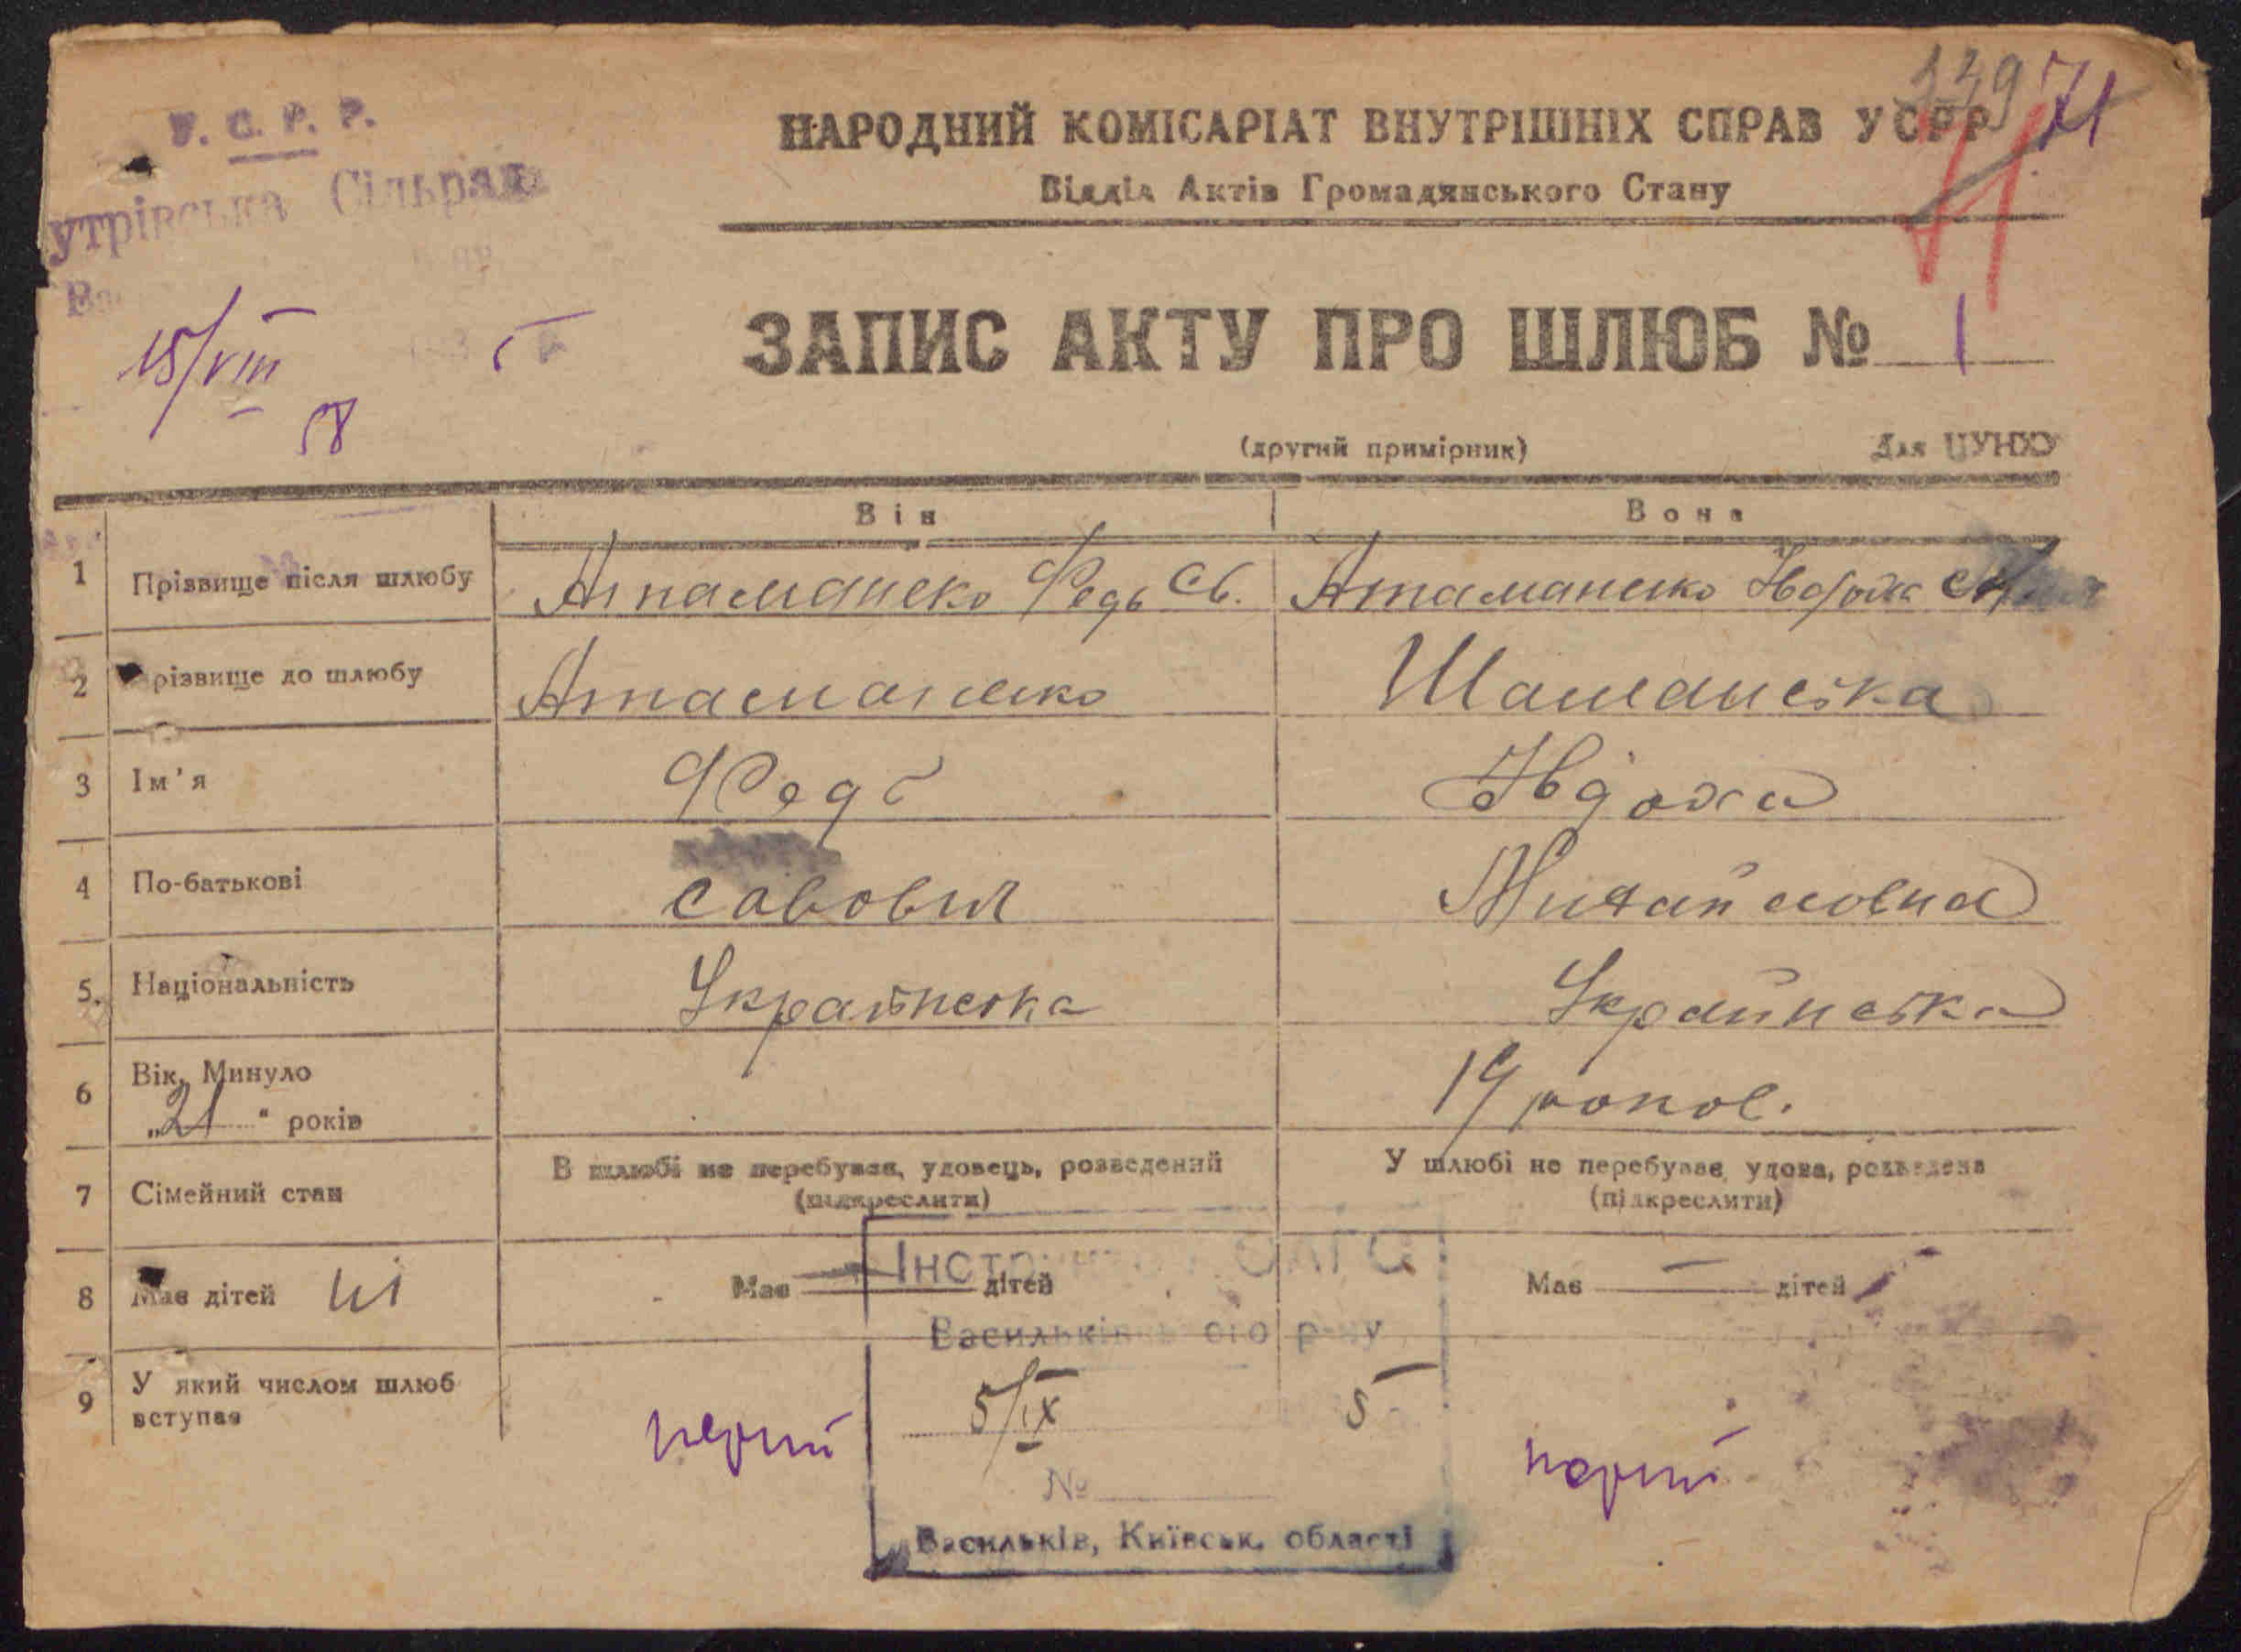 У. С. Р. Р.
утрівська Сільрада
15/VIII 5
58
149 71
71
НАРОДНИЙ КОМІСАРІАТ ВНУТРІШНІХ СПРАВ УСРР
Відділ Актів Громадянського Стану
ЗАПИС АКТУ ПРО ШЛЮБ № 1
(другий примірник) Для ЦУНХО
Він Вона
1 Прізвище після шлюбу Атаманско Федь Сб. Атаманско Явдоха
2 різвище до шлюбу Атаманско Шаманська
3 Ім'я Федь Явдоха
4 По-батькові Савович Михайловна
5. Національність Українська Українська
6 Вік. Минуло „21“ років 19 роков.
7 Сімейний стан В шлюбі не перебував, удовець, розведений (підкреслити) У шлюбі не перебувае, удова, розведена (підкреслити)
8 Має дітей ні Має — дітей Має — дітей
9 У який числом шлюб вступає перший перший
Васильків ого р-ну
5/IX 5
№
Васильків, Київськ. області